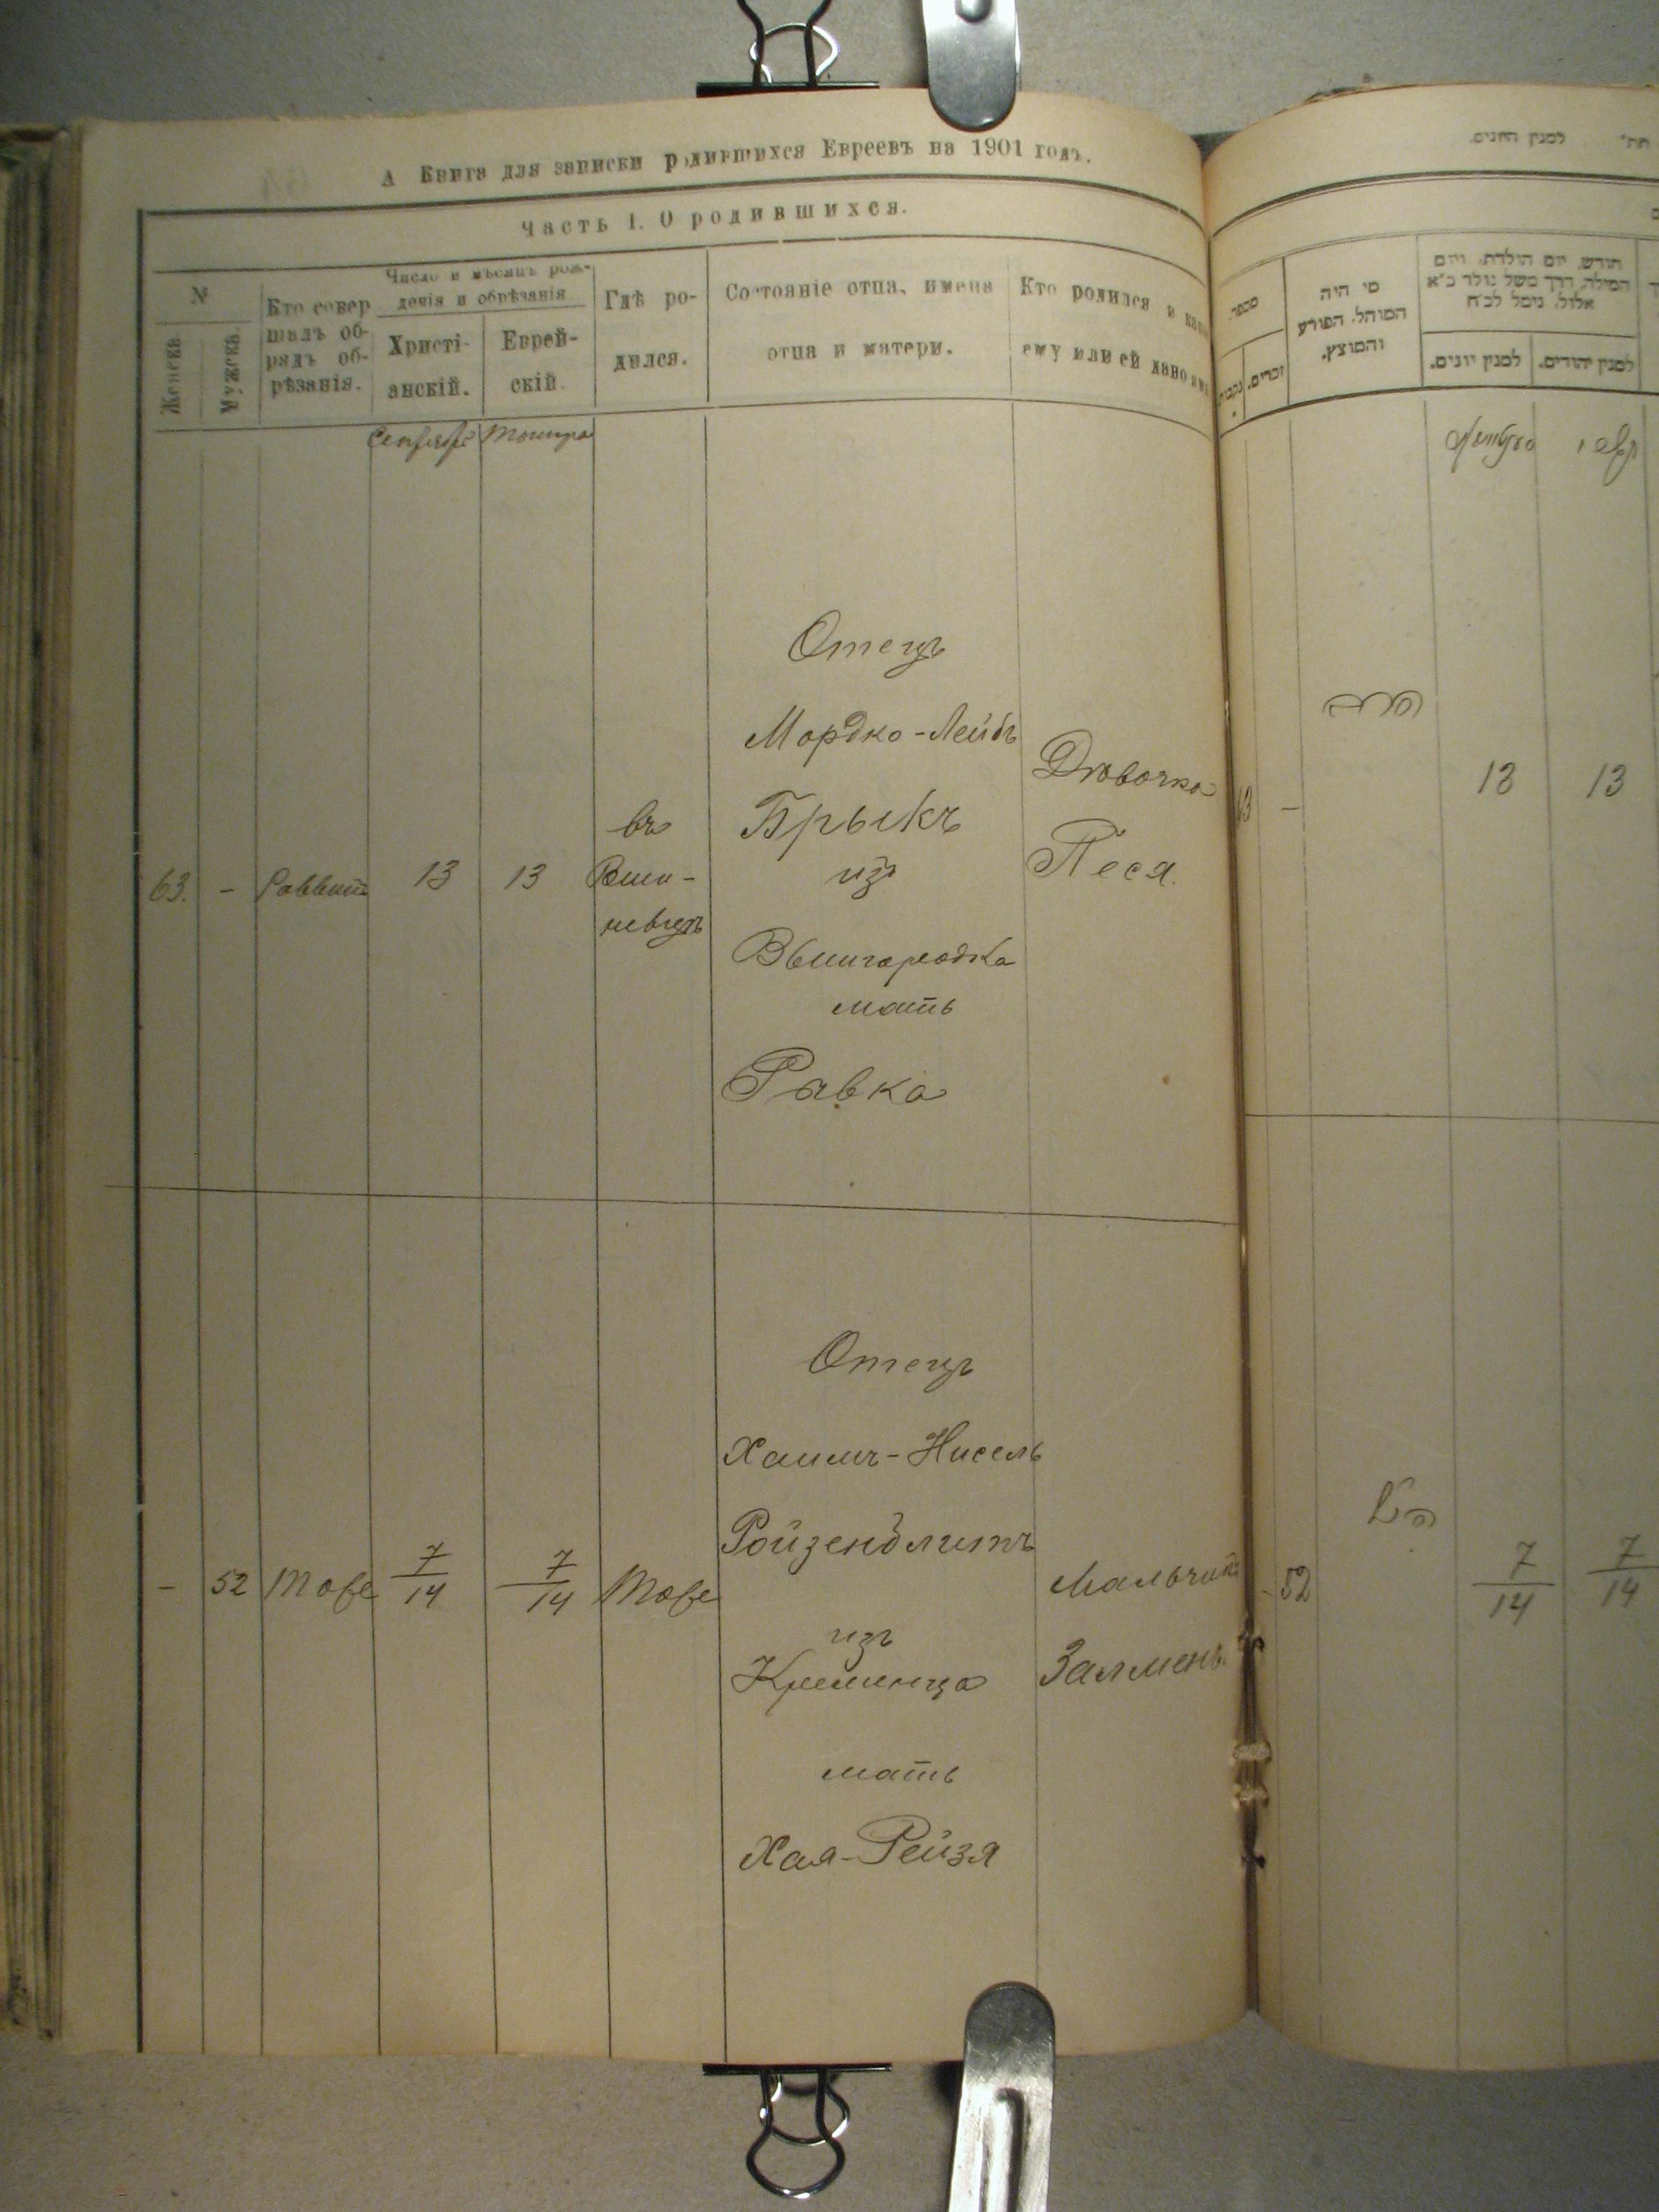 А Книга для записки родившихся Евреевъ на 1901 годъ.
Часть I. О родившихся.
№
Женска.
Мужска.
Кто совер
шалъ об-
рядъ об-
рѣзанія.
Число и мѣсяцъ рож-
денія и обрѣзанія
Христі-
анскій.
Еврей-
скій.
Гдѣ ро-
дился.
Состояніе отца, имена
отца и матери.
Кто родился и какое
ему или ей дано имя
Сентябрь
Тишри
63.
-
Раввинъ
13
13
въ
невцѣ
Отецъ
Мордко-Лейбъ
Брыкъ
изъ
Вышгородка
мать
Рывка
Дѣвочка
Песя.
-
52
Тоже
7
14
7
14
Тоже
Отецъ
Хаимъ-Нисель
Ройзенблитъ
изъ
Кременца
мать
Хая-Рейзя
Мальчикъ
Залменъ.
למנין הזנים.
מספר
זכרים.
נקבות
מי היה
המוהל, הפורע
והמוצץ.
חודש, יום הולדת, ויום
המילה, דרך משל נולד כ"א
אלול, נימל לכ"ח
למנין יונים.
למנין יהודים.
63
-
הרב
13
13
-
52
הנ"ל
7
14
7
14